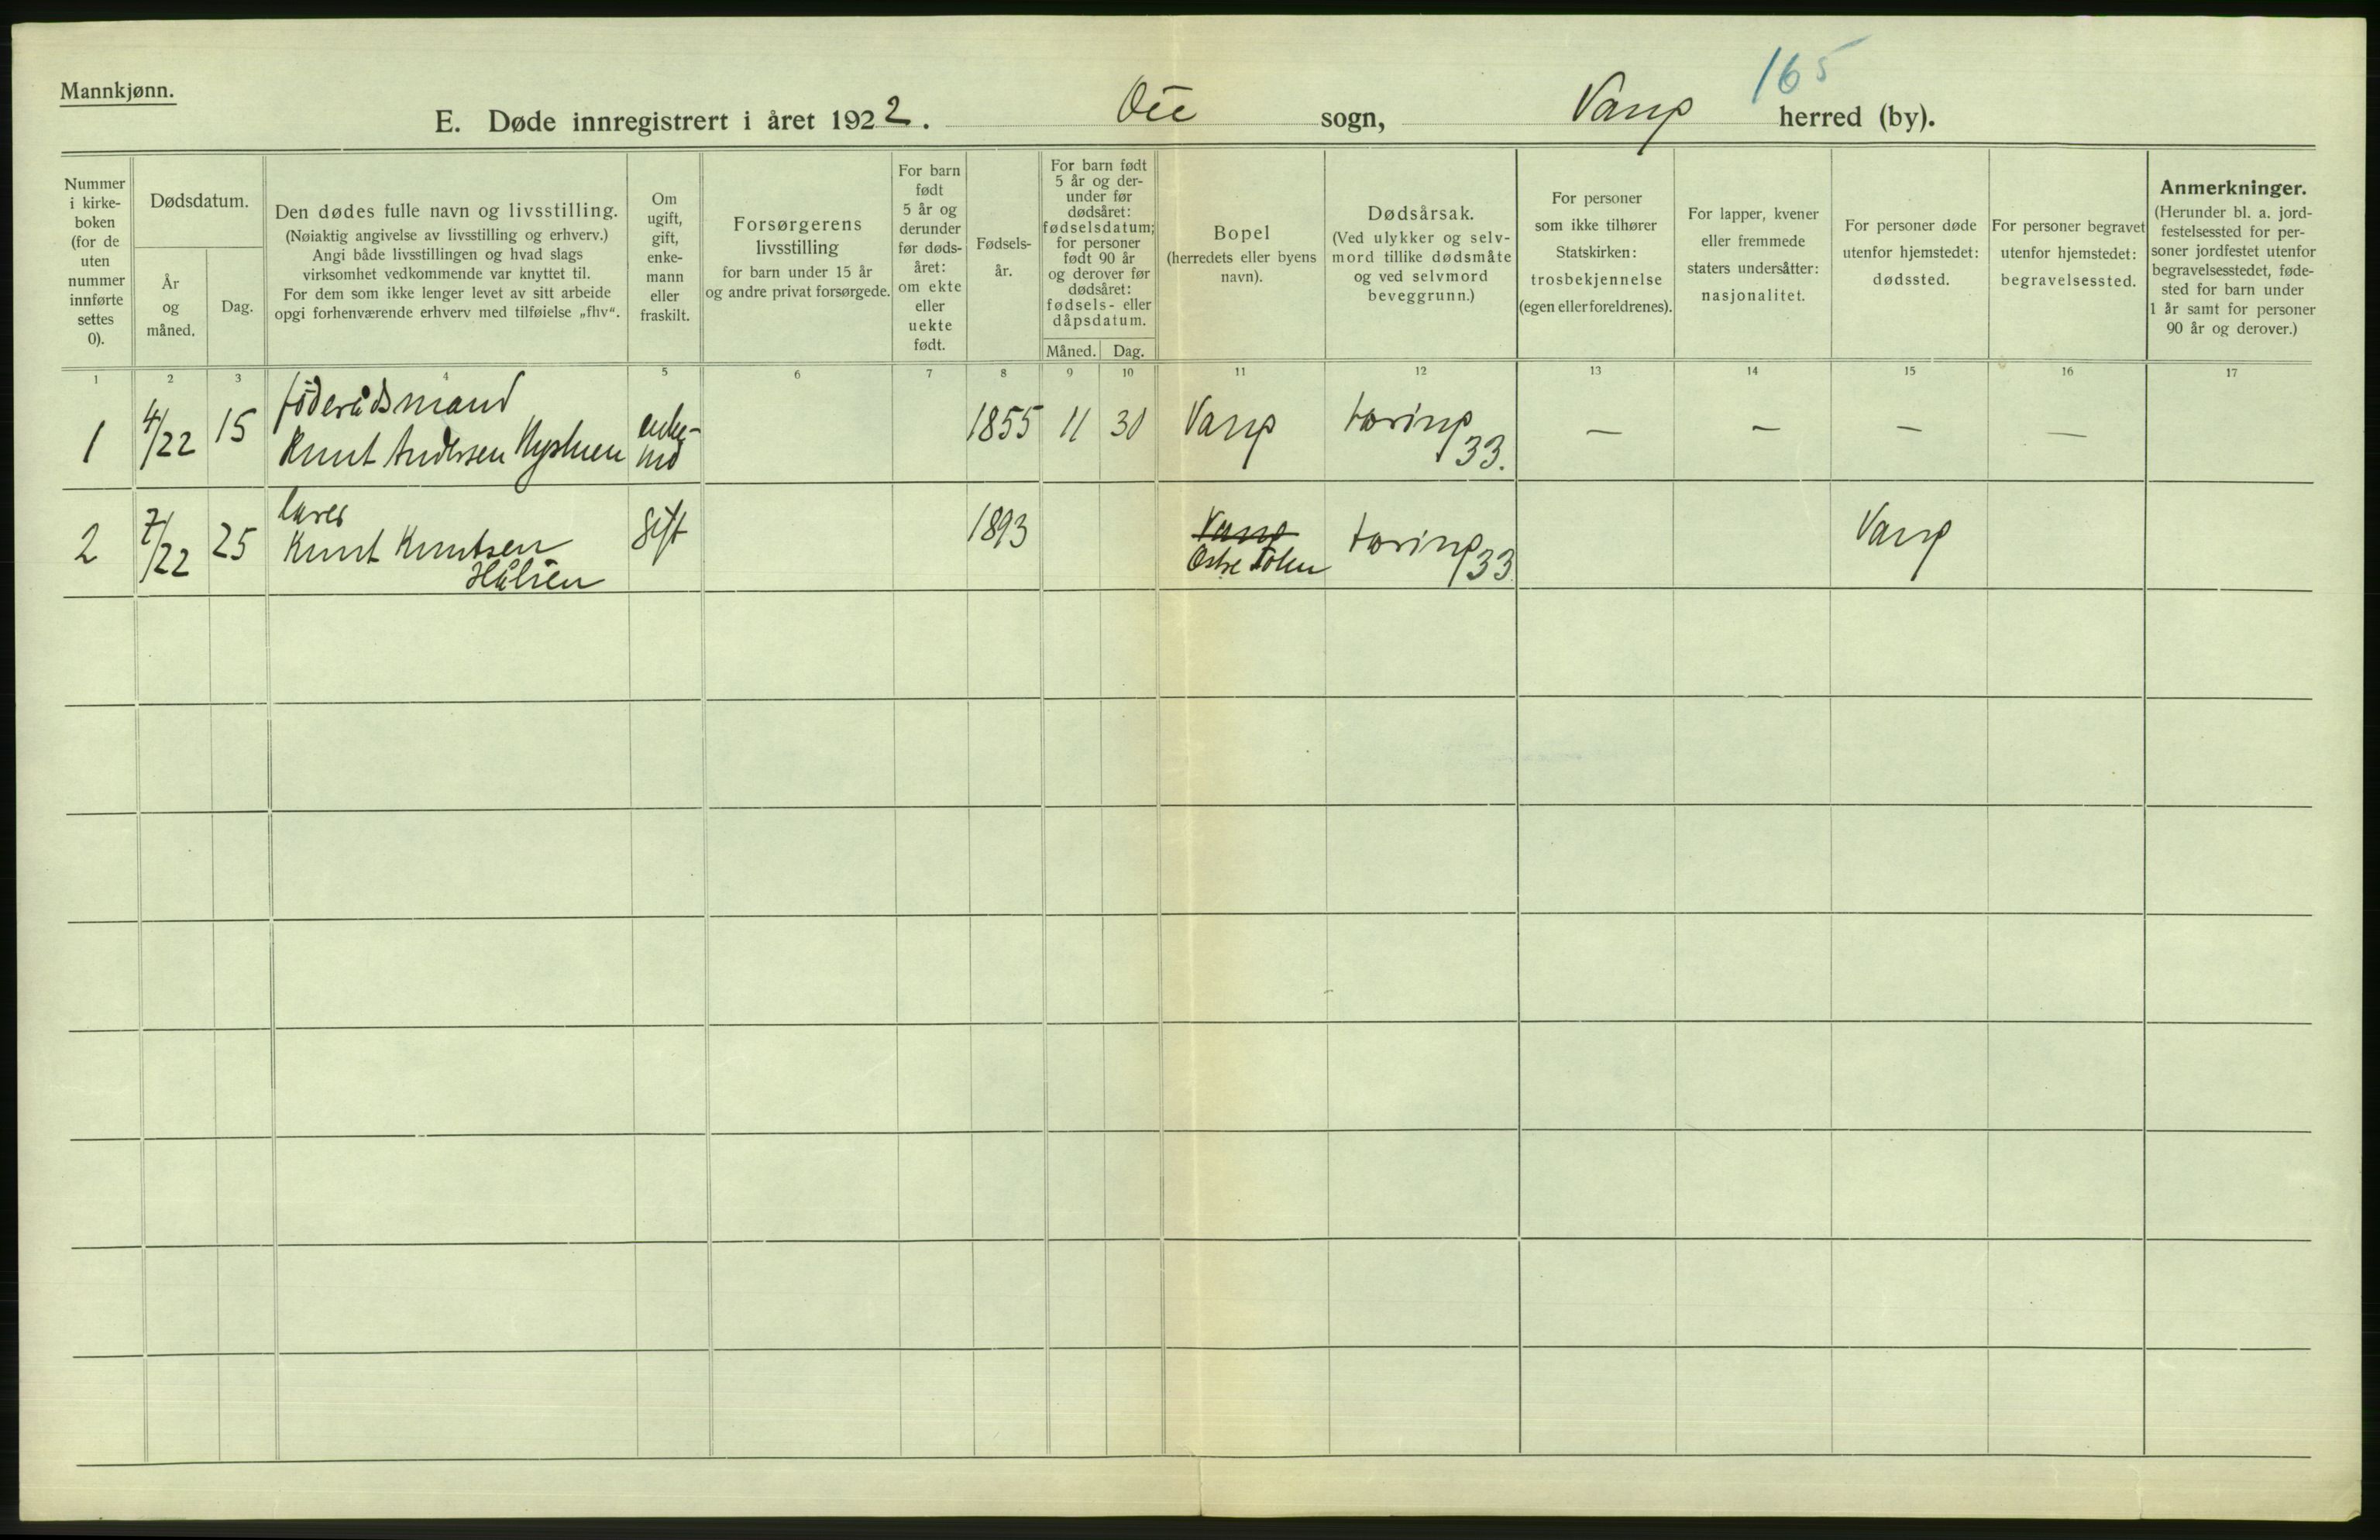 165
Mannkjønn.
E. Døde innregistrert i året 1922. Øie sogn, Vang herred (by).
Nummer
i kirke-
boken
(for de
uten
nummer
innførte
settes
0).
Dødsdatum.
År
og
måned.
Dag.
Den dødes fulle navn og livsstilling.
(Nøiaktig angivelse av livsstilling og erhverv.)
Angi både livsstillingen og hvad slags
virksomhet vedkommende var knyttet til.
For dem som ikke lenger levet av sitt arbeide
opgi forhenværende erhverv med tilføielse „fhv“.
Om
ugift,
gift,
enke-
mann
eller
fraskilt.
Forsørgerens
livsstilling
for barn under 15 år
og andre privat forsørgede.
For barn
født
5 år og
derunder
før døds-
året:
om ekte
eller
uekte
født.
Fødsels-
år.
For barn født
5 år og der-
under før
dødsåret:
fødselsdatum;
for personer
født 90 år
og derover før
dødsåret:
fødsels- eller
dåpsdatum.
Måned. Dag.
Bopel
(herredets eller byens
navn).
Dødsårsak.
(Ved ulykker og selv-
mord tillike dødsmåte
og ved selvmord
beveggrunn.)
For personer
som ikke tilhører
Statskirken:
trosbekjennelse
(egen eller foreldrenes).
For lapper, kvener
eller fremmede
staters undersåtter:
nasjonalitet.
For personer døde
utenfor hjemstedet:
dødssted.
For personer begravet
utenfor hjemstedet:
begravelsessted.
Anmerkninger.
(Herunder bl. a. jord-
festelsessted for per-
soner jordfestet utenfor
begravelsesstedet, føde-
sted for barn under
1 år samt for personer
90 år og derover.)
1 2 3 4 5 6 7 8 9 10 11 12 13 14 15 16 17
føderådsmand
1 4/22 15 Knut Andersen Nystuen enke-
md 1855 11 30 Vang tæring 33. — — — —
lærer
2 7/22 25 Knut Knutsen gift 1893 Vang tæring 33. Vang
Hålien Østre Toten